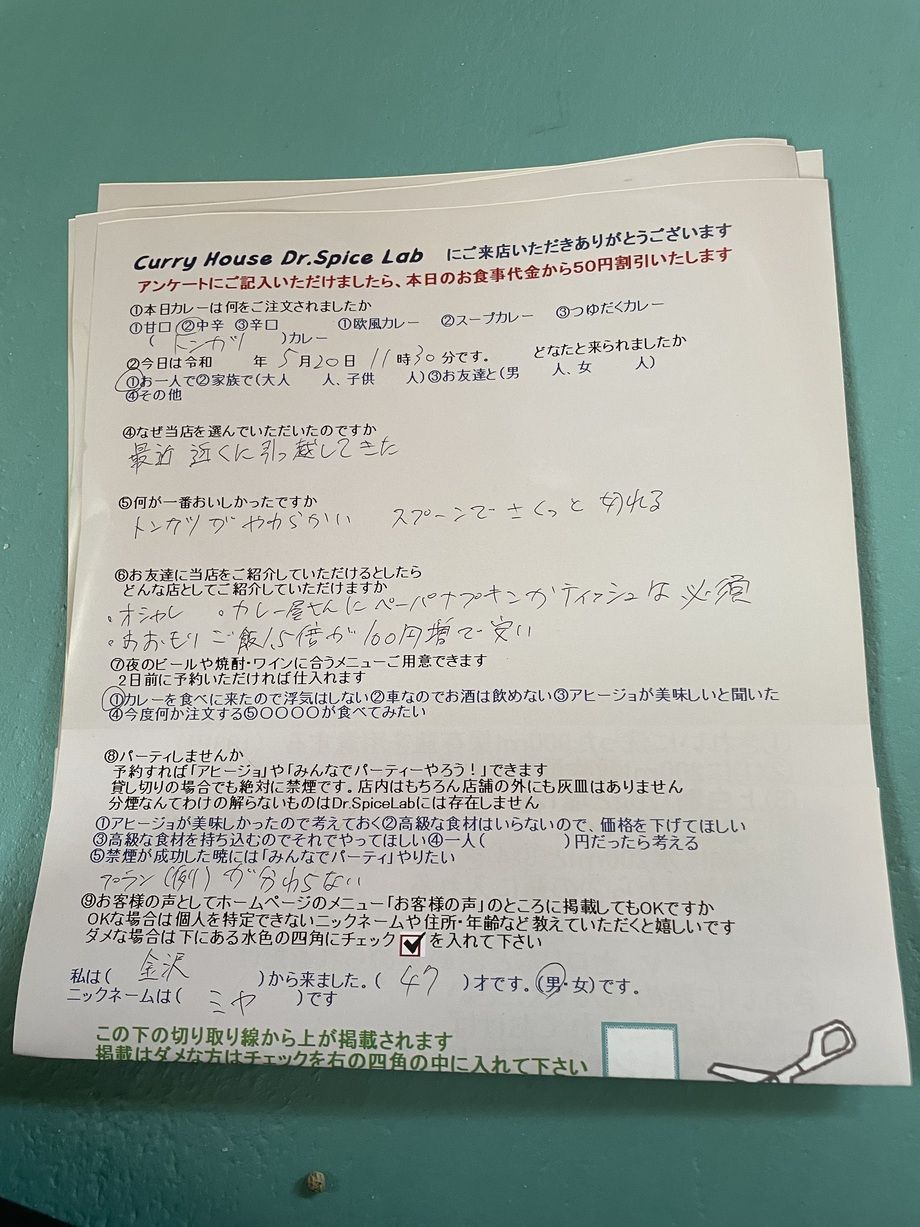 Curry House Dr.Spice Lab にご来店いただきありがとうございます
アンケートにご記入いただけましたら、本日のお食事代金から50円割引いたします
①本日カレーは何をご注文されましたか
①甘口 ②中辛 ③辛口 ①欧風カレー ②スープカレー ③つゆだくカレー
(トンカツ)カレー
②今日は令和 年 5月20日 11時30分です。 どなたと来られましたか
①お一人で②家族で(大人 人、子供 人)③お友達と(男 人、女 人)
④その他
④なぜ当店を選んでいただいたのですか
最近 近くに引っ越してきた
⑤何が一番おいしかったですか
トンカツがやわらかい スプーンでさくっと切れる
⑥お友達に当店をご紹介していただけるとしたら
どんな店としてご紹介していただけますか
・オシャレ ・カレー屋さんにペーパナプキンかティッシュは必須
・おおもりご飯1.5倍が100円増で安い
⑦夜のビールや焼酎・ワインに合うメニューご用意できます
2日前に予約いただければ仕入れます
①カレーを食べに来たので浮気はしない②車なのでお酒は飲めない③アヒージョが美味しいと聞いた
④今度何か注文する⑤〇〇〇〇が食べてみたい
⑧パーティしませんか
予約すれば「アヒージョ」や「みんなでパーティーやろう!」できます
貸し切りの場合でも絶対に禁煙です。店内はもちろん店舗の外にも灰皿はありません
分煙なんてわけの解らないものはDr.SpiceLabには存在しません
①アヒージョが美味しかったので考えておく②高級な食材はいらないので、価格を下げてほしい
③高級な食材を持ち込むのでそれでやってほしい④一人( )円だったら考える
⑤禁煙が成功した暁には「みんなでパーティ」やりたい
プラン(例)が分わらない
⑨お客様の声としてホームページのメニュー「お客様の声」のところに掲載してもOKですか
OKな場合は個人を特定できないニックネームや住所・年齢など教えていただくと嬉しいです
ダメな場合は下にある水色の四角にチェック を入れて下さい
私は( 金沢 )から来ました。( 47 )才です。(男・女)です。
ニックネームは( ミヤ )です
この下の切り取り線から上が掲載されます
掲載はダメな方はチェックを右の四角の中に入れて下さい